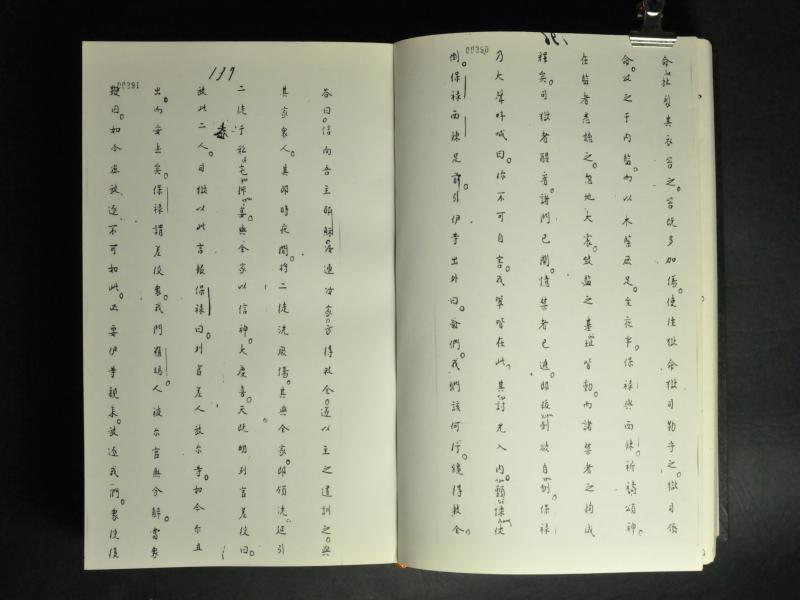 00350
命扯裂其衣笞之。笞既多加傷。使往獄命獄司勤守之。獄司領
命。放之于內監。而以木柴压足。至夜半。保祿與西辣祈禱頌神。
在監者悉聽之。忽地大震。致監之基址皆動。而諸禁者之拘咸
釋矣。司獄者醒。諸門已開。情禁者已遁。即拔劍欲自刎。保祿
乃大聲呼喊曰。你不可自害。我輩皆在此。其討光入內。顫慄伏
倒。保祿西辣足前。引伊等出外曰。爺們。我們該何行。纔得救全。
137
00391
答曰。信向吾主耶穌。汝連汝家。方得救全。遂以主之道訓之。與
其家衆人。其即時夜間。將二徒洗厥傷。其與全家。即領洗。延引
二徒于私宅。擺宴。與全家以信神。大慶喜。天既明。列官差役曰。
放此二人。司獄以此言報保祿曰。列官差人放尔等。如今尔且
出。而安去矣。保祿謂差役衆。我們羅瑪人。被尔官無分解。當衆
鞭曰。如今密放逐。不可如此。必要伊等親來。放逐我們。衆役復